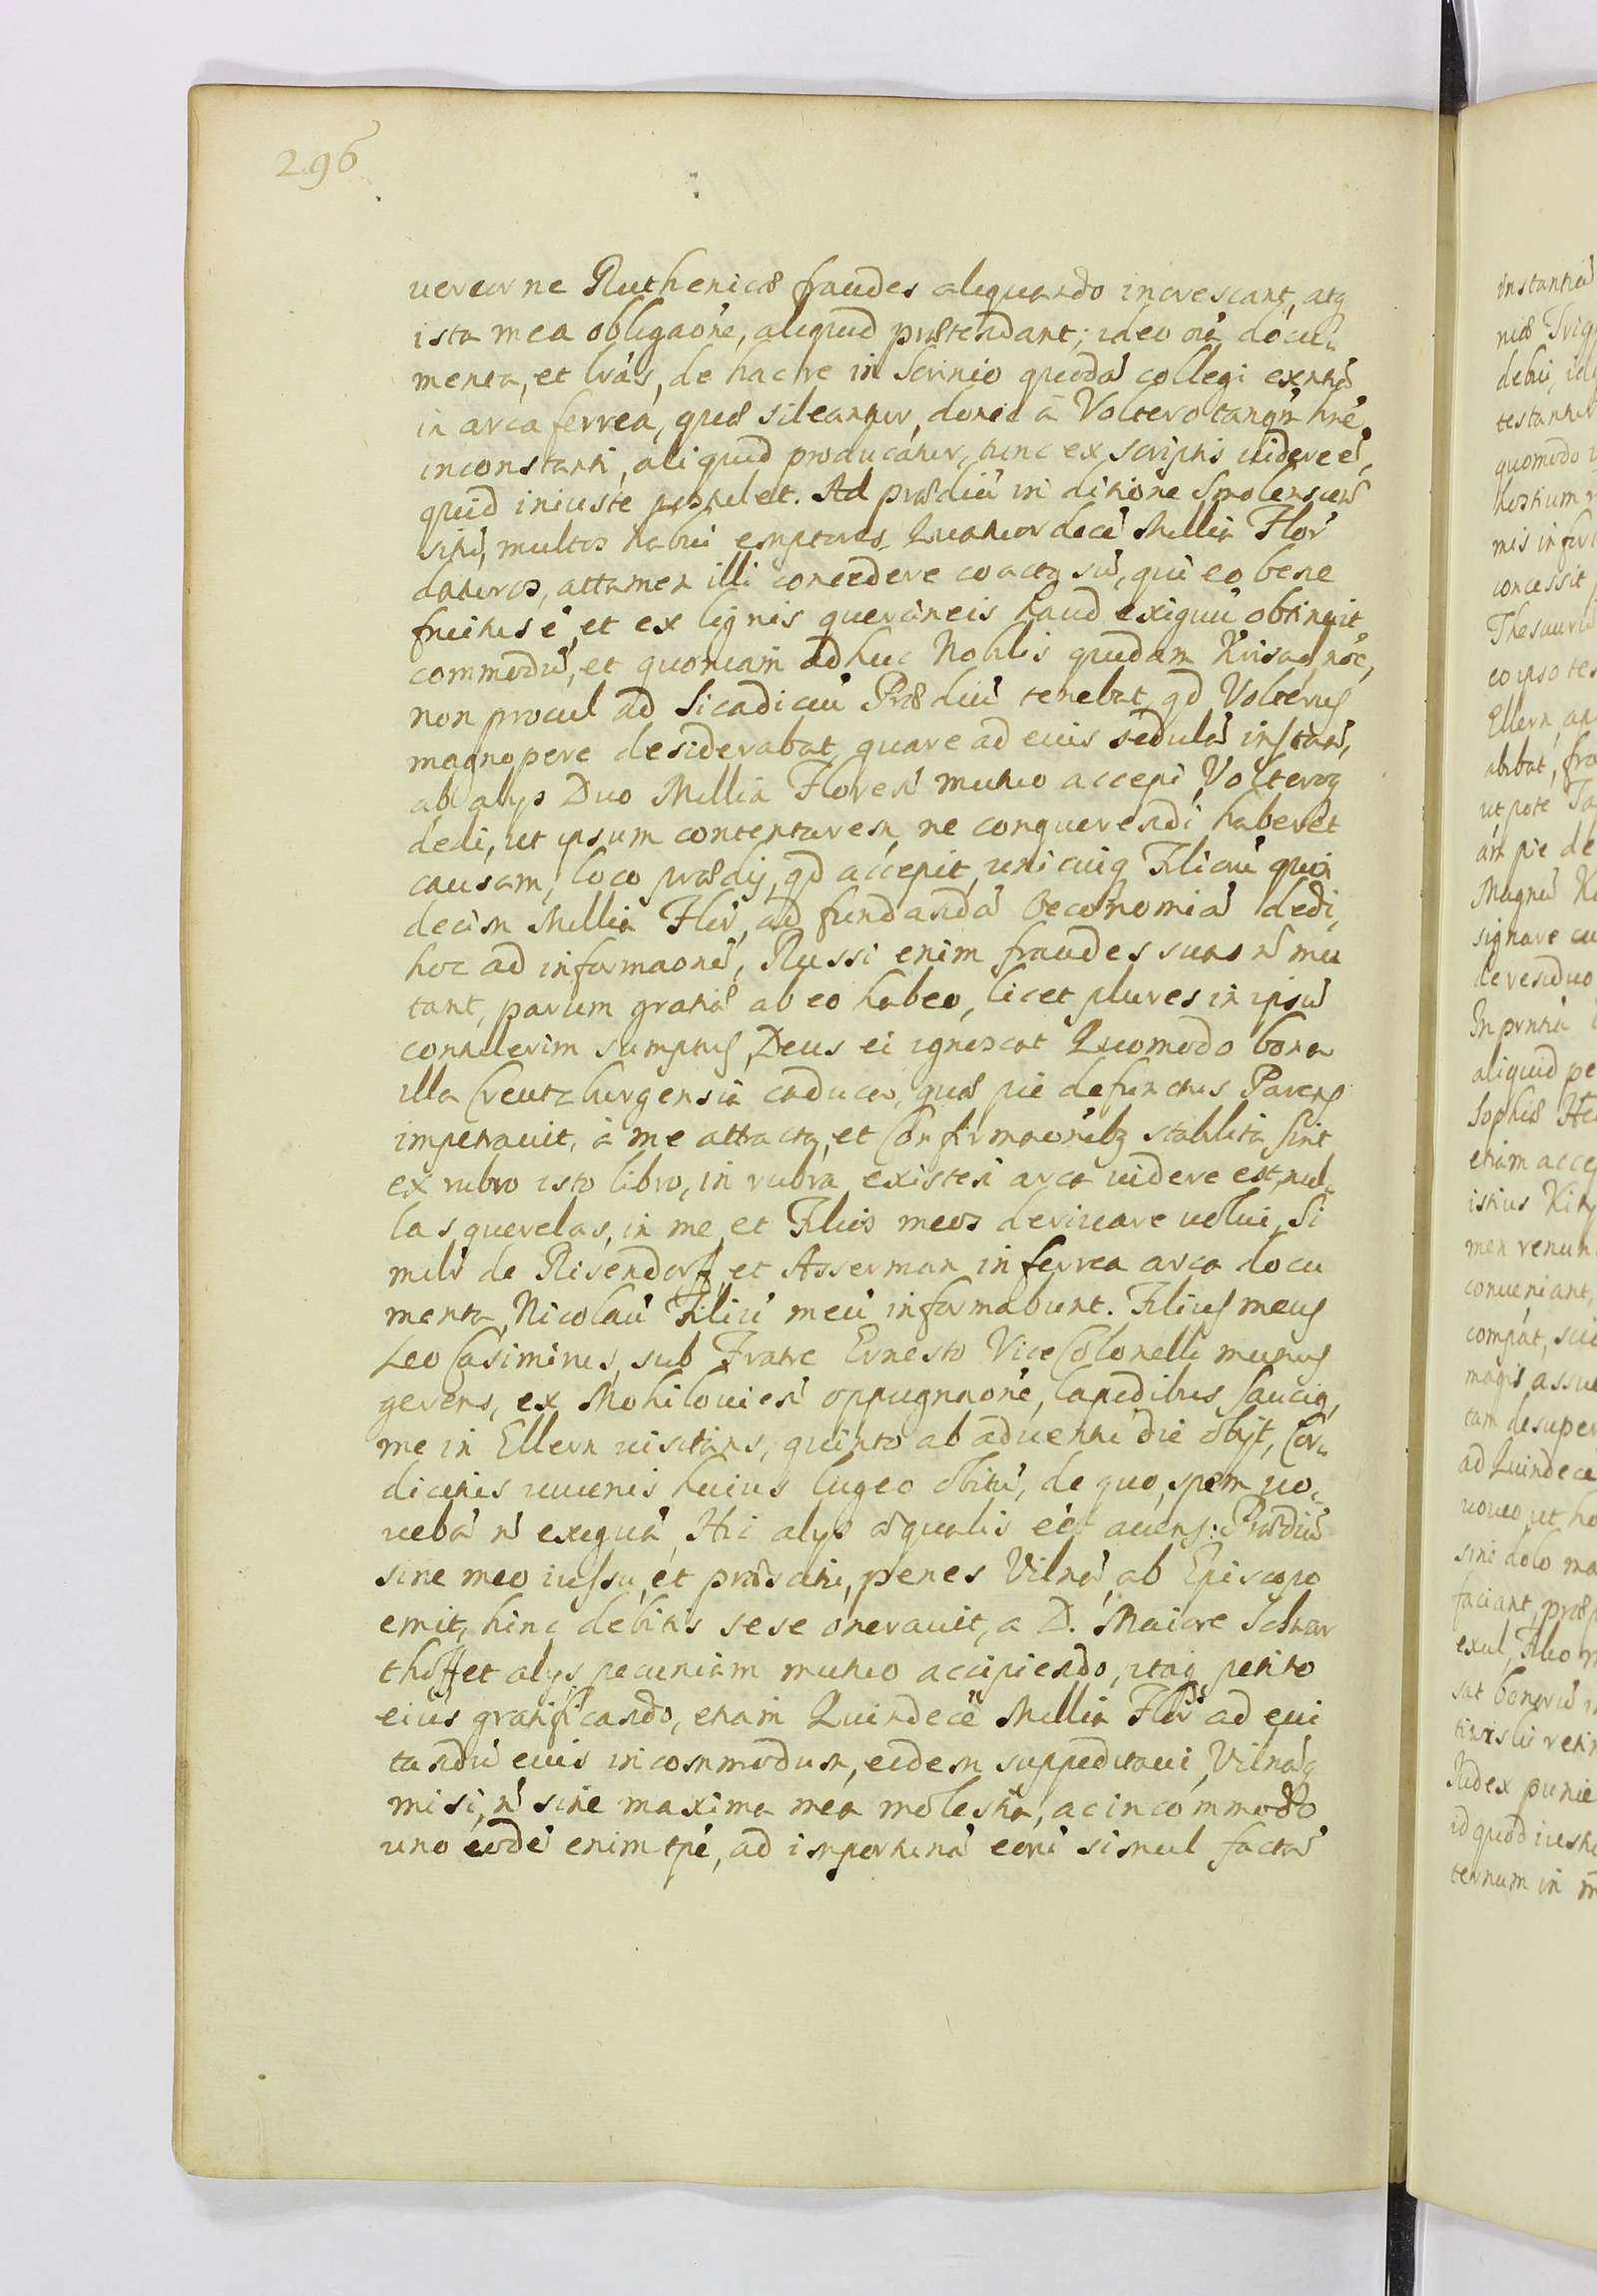 296
uerear ne Ruthenicæ fraudes aliquando increscant, atq
ista mea obligaōne, aliquid prætendant; ideo oīa docu-
menta, et lrās, de hac re in Scrinio quodā collegi extñd
in arca ferrea, quæ sileantur, donec à Voltero tanqm̄ hnē
inconstanti, aliquid producatur, tunc ex scriptis uidere ē,
quid iniuste postulet. Ad prædiū in ditione Smolenscen̄
sitū, multos habui emptores Quatuordecē Millia Flor̄
daturos, attamen illi concedere coactq sū, qui eo bene
fruitus ē, et ex lignis quercineis haud exiguū obtinuit
commodū, et quoniam adhuc Nobilis quidam
non procul ad Sicadicū Prædiū tenebat, qd Volterus
magnopere desiderabat, quare ad eius sedulā instān,
ab alijs Duo Millia Floren̄ mutuo accepi, Volteroq
dedi, ut ipsum contentarem, ne conquerendi haberet
causam, loco prædij, qd accepit, unicuiq Filiorū quin
decim Millia Flor̄, ad fundandā Oeconomiā dedi,
hoc ad informaōnē, Russi enim fraudes suas n̄ mu
tant, parum gratiæ ab eo habeo, licet plures in ipsū
contulerim sumptus, Deus ei ignoscat Quomodo bona
illa Creutzburgensia caduca, quæ pie defunctus Parens
impetrauit, à me attracta, et Confirmaōnibq stabilita sint
ex rubro isto libro, in rubra existen̄ arca uidere est, nul-
las querelas, in me et Filios meos deriuare uolui, Si
milr̄ de Risendorff, et Asserman in ferrea arca docu
menta, Nicolaū Filiū meū informabunt. Filius meus
Leo Casimirus, sub Fratre Ernesto Vice Colonelli munus
gerens, ex Mohilouien̄ oppugnaōne, lapidibus sauciq,
me in Ellern uisitans, quinto ab aduentu die obijt, Cor-
dicitus iuuenis huius lugeo obitū, de quo, spem uo-
uebā n̄ exiguā, Hic alijs æqualis ēē auens: Prædiū
sine meo iussu, et præscitu, penes Vilnā, ab Episcopo
emit, hinc debitis sese onerauit, a D. Maiore Schwar
thoff et alijs pecuniam mutuo accipiendo, itaq petito
eius gratificando, etiam Quindecē Millia Flor̄ ad eui
tandū eius incommodum, eidem suppeditaui, Vilnāq
misi, n̄ sine maxima mea molestia, ac incommodo
uno eodē enim tpē, ad importunā eorū simul factā
instantiā
niæ Trig
debui, id
testantur
quomodo
hostium
mis infer
concessit
Thesauru
eo ipso tes
Ellern, an
abibat, fra
ut pote Ta
am pie de
Magnū
signare cu
de residuo
aliquid pe
Sophiæ
etiam accep
istius
men renun
conueniant,
compāt, sci
magis assue
tam desuper
ad Quindece
uoueo, ut ho
sine dolo ma
faciant, præ
exul, Filio m
sat bonorū
Judex punie
id quod iuste
ternum in